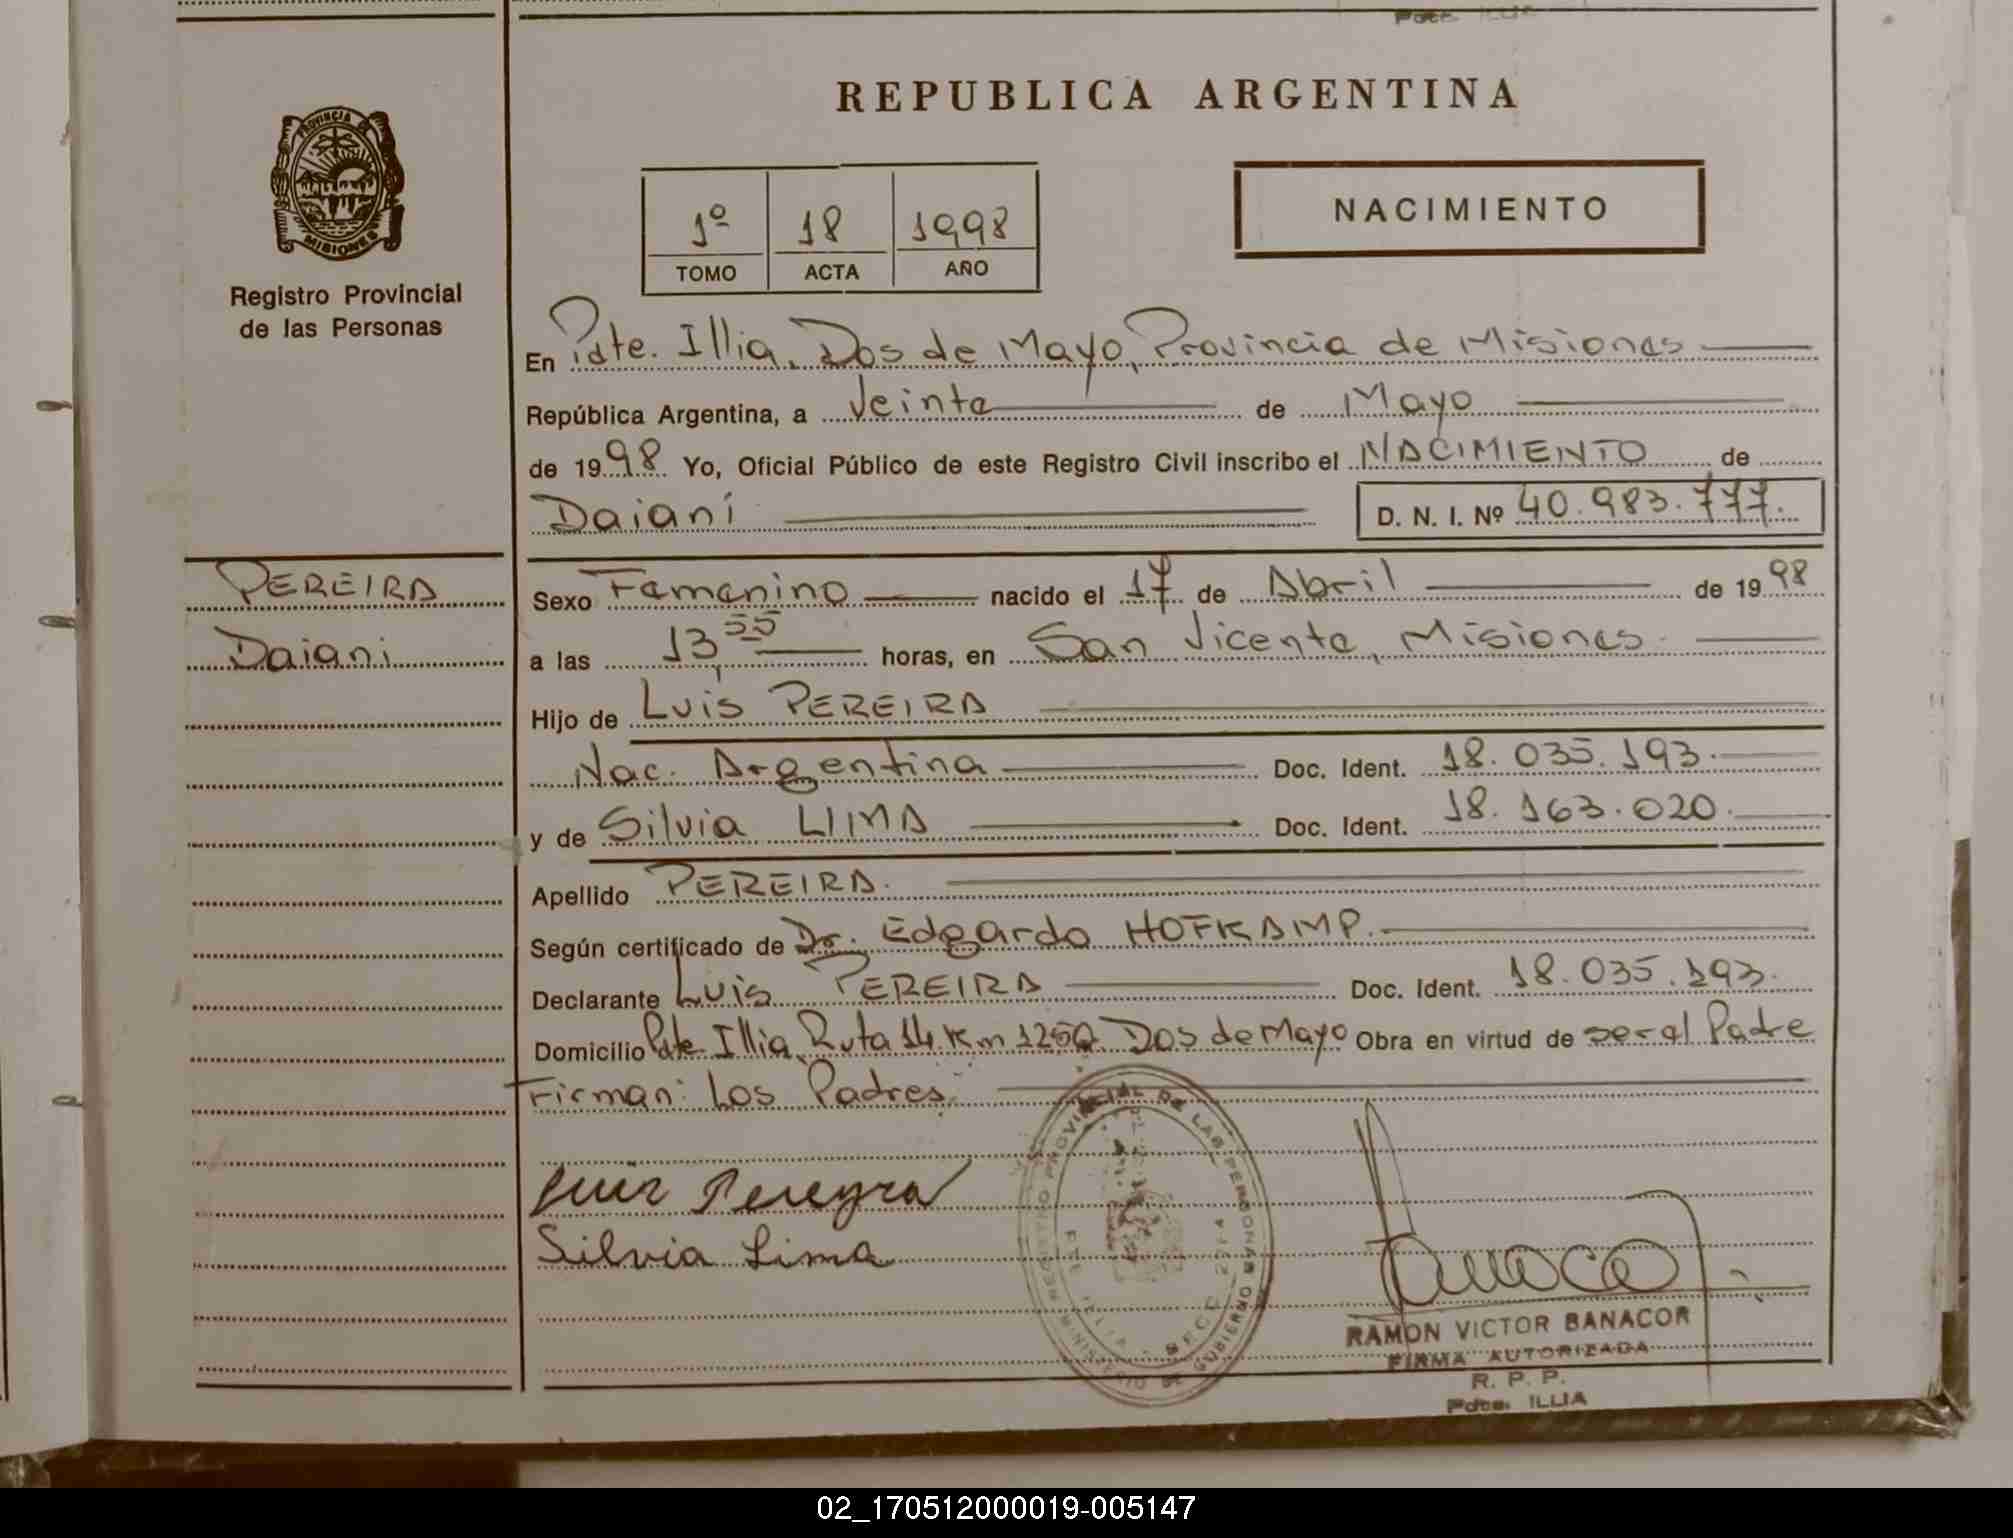 Pdte. ILLIA
REPUBLICA ARGENTINA
PROVINCIA DE
MISIONES
Registro Provincial
de las Personas
1º 18 1998
TOMO ACTA AÑO
NACIMIENTO
En Pdte. Illia, Dos de Mayo, Provincia de Misiones
República Argentina, a Veinte de Mayo
de 1998 Yo, Oficial Público de este Registro Civil inscribo el NACIMIENTO de
Daiani D. N. I. Nº 40.983.777.
PEREIRA
Daiani
Sexo Femenino nacido el 17 de Abril de 1998
a las 13,55 horas, en San Vicente, Misiones
Hijo de Luis PEREIRA
Nac. Argentina Doc. Ident. 18.035.193.
y de Silvia LIMA Doc. Ident. 18.163.020.
Apellido PEREIRA.
Según certificado de Dr. Edgardo HOFKAMP.
Declarante Luis PEREIRA Doc. Ident. 18.035.193.
Domicilio Pdte Illia, Ruta 14 Km 1250. Dos de Mayo Obra en virtud de ser el Padre
Firman: Los Padres.
Luis Pereyra
Silvia Lima
REGISTRO PROVINCIAL DE LAS PERSONAS
MINISTERIO DE GOBIERNO
RAMON VICTOR BANACOR
FIRMA AUTORIZADA
R. P. P.
Pdte. ILLIA
02_170512000019-005147